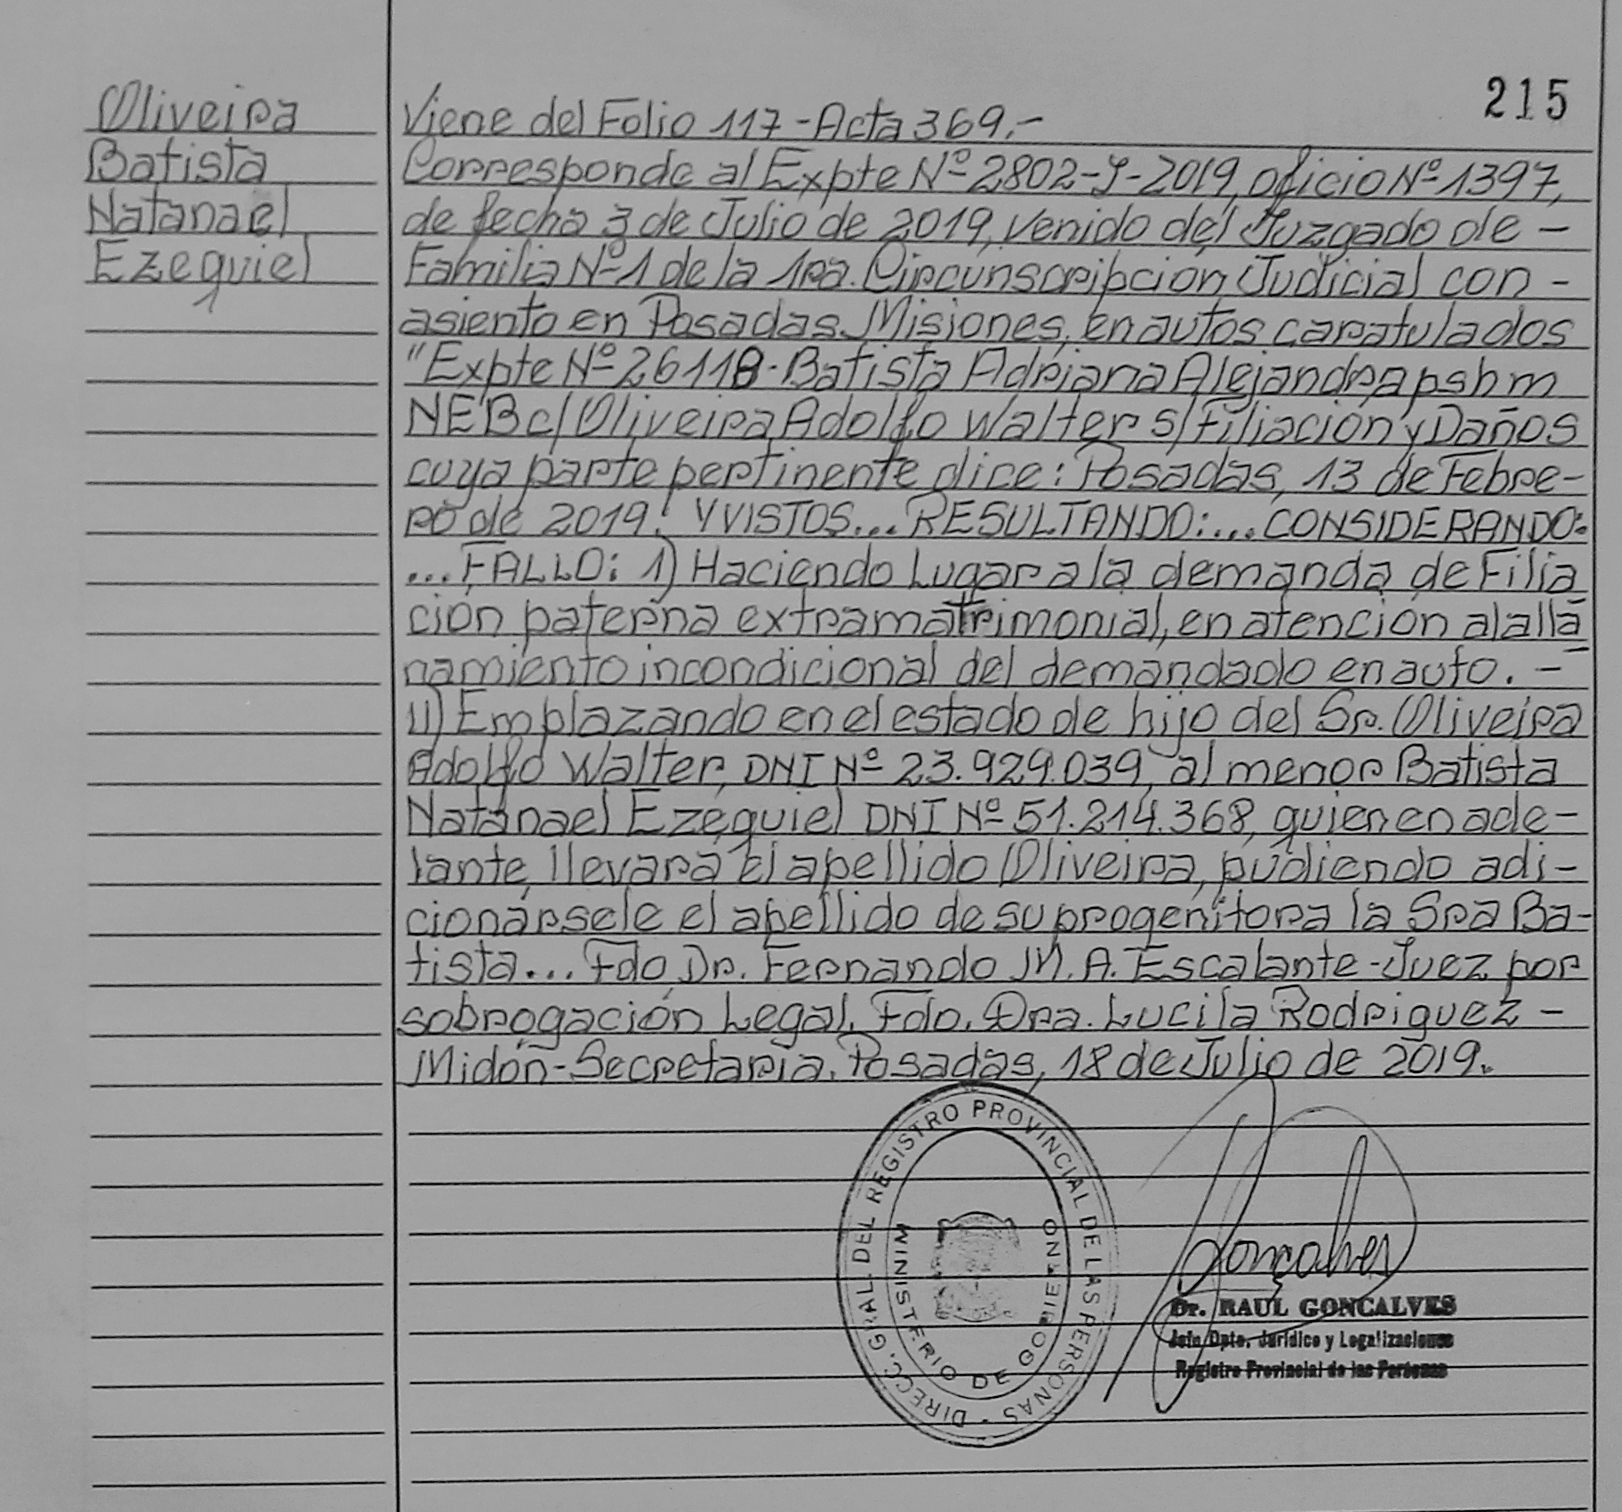 215
Oliveira
Batista
Natanael
Ezequiel
Viene del Folio 117 - Acta 369.-
Corresponde al Expte Nº 2802-J-2019, oficio Nº 1397,
de fecha 3 de Julio de 2019, venido del Juzgado de -
Familia Nº 1 de la 1ra. Circunscripcion Judicial con -
asiento en Posadas Misiones, en autos caratulados
"Expte Nº 26118 - Batista Adriana Alejandra pshm
NEB c/ Oliveira Adolfo Walter S/ Filiación y Daños
cuya parte pertinente dice: Posadas, 13 de Febre-
ro de 2019. Y VISTOS... RESULTANDO:... CONSIDERANDO:
... FALLO: 1) Haciendo Lugar a la demanda de Filia
ción paterna extramatrimonial, en atención al alla
namiento incondicional del demandado en auto. -
II) Emplazando en el estado de hijo del Sr. Oliveira
Adolfo Walter, DNI Nº 23.929.039, al menor Batista
Natanael Ezequiel DNI Nº 51.214.368, quien en ade-
lante, llevará el apellido Oliveira, pudiendo adi-
cionársele el apellido de su progenitora la Sra Ba-
tista... Fdo, Dr. Fernando M. A. Escalante - Juez por
sobrogación Legal. Fdo. Dra. Lucila Rodriguez -
Midón - Secretaria. Posadas, 18 de Julio de 2019.
DIRECC. GRAL. DEL REGISTRO PROVINCIAL DE LAS PERSONAS -
MINISTERIO DE GOBIERNO
Goncalves
Dr. RAUL GONCALVES
Jefe Dpto. Jurídico y Legalizaciones
Registro Provincial de las Personas